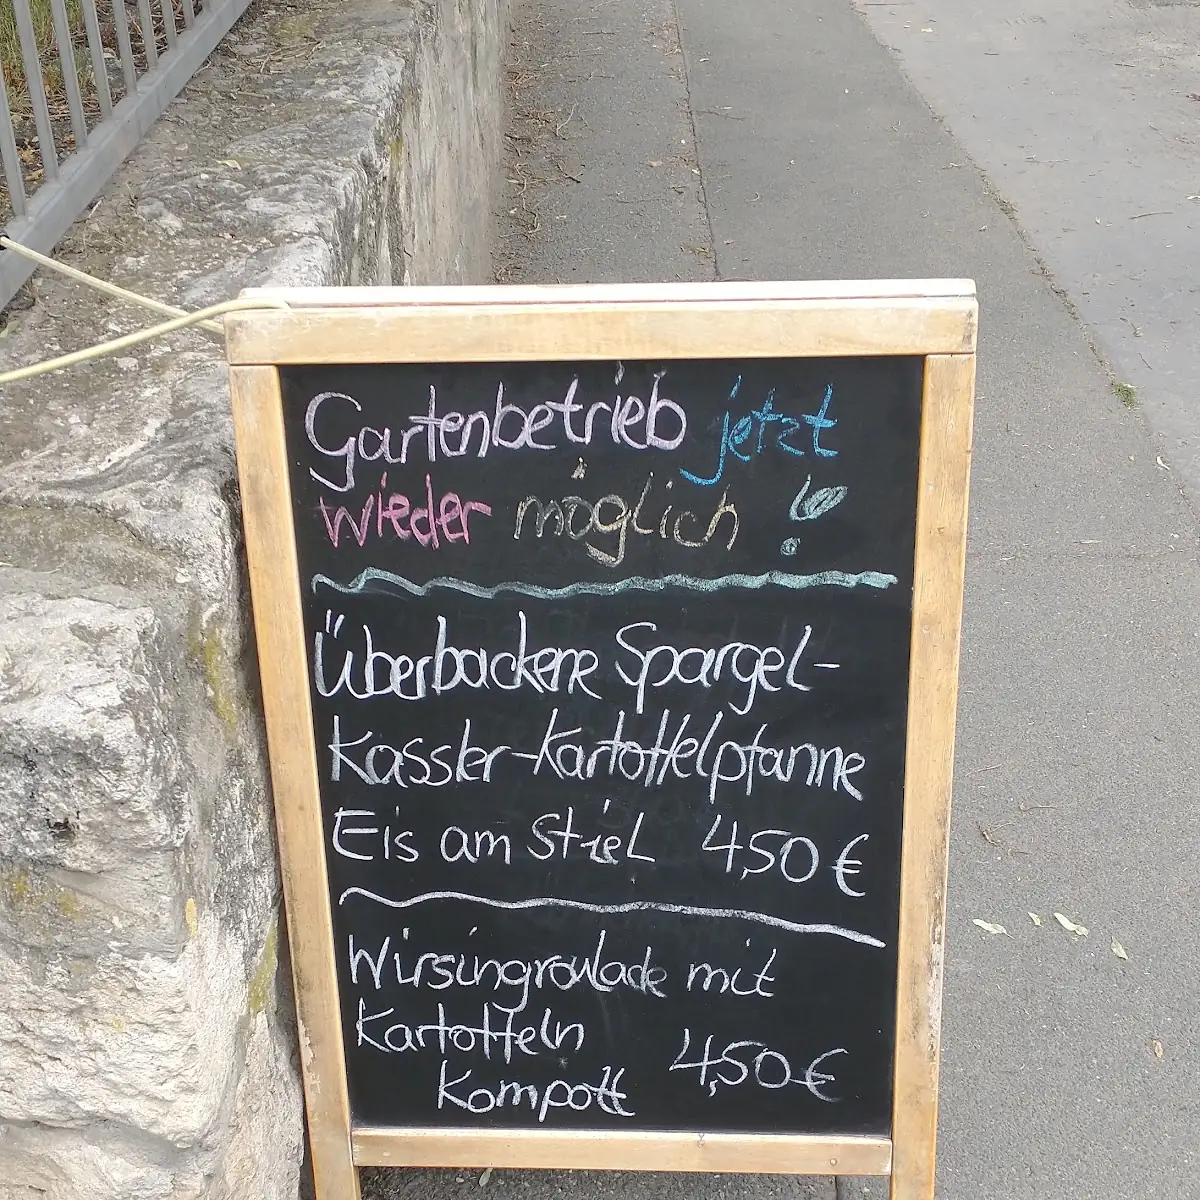 Gartenbetrieb jetzt
wieder möglich !
Überbackene Spargel-
Kassler-Kartoffelpfanne
Eis am Stiel 4,50 €
Wirsingroulade mit
Kartoffeln
Kompott 4,50 €